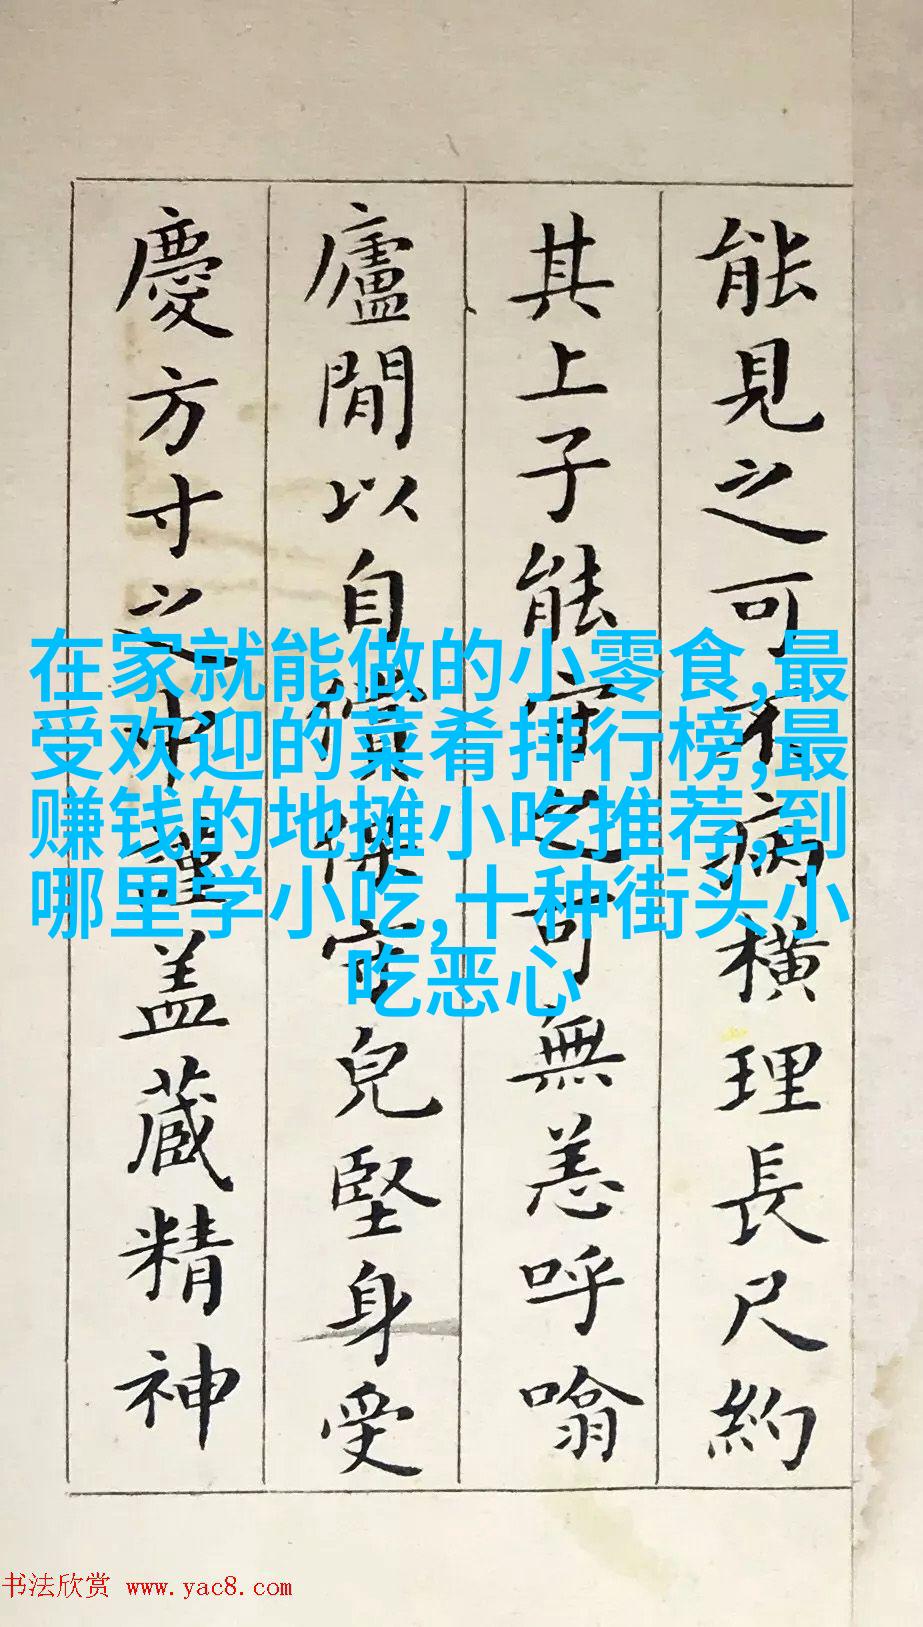 能見之可不病橫理長尺約
其上子能守之可無恙呼噏
廬閒以自償保守兒堅身受
慶方寸之中謹盖藏精神
在家就能做的小零食,最
受欢迎的菜肴排行榜,最
赚钱的地摊小吃推荐,到
哪里学小吃,十种街头小
吃恶心
书法欣赏 www.yac8.com